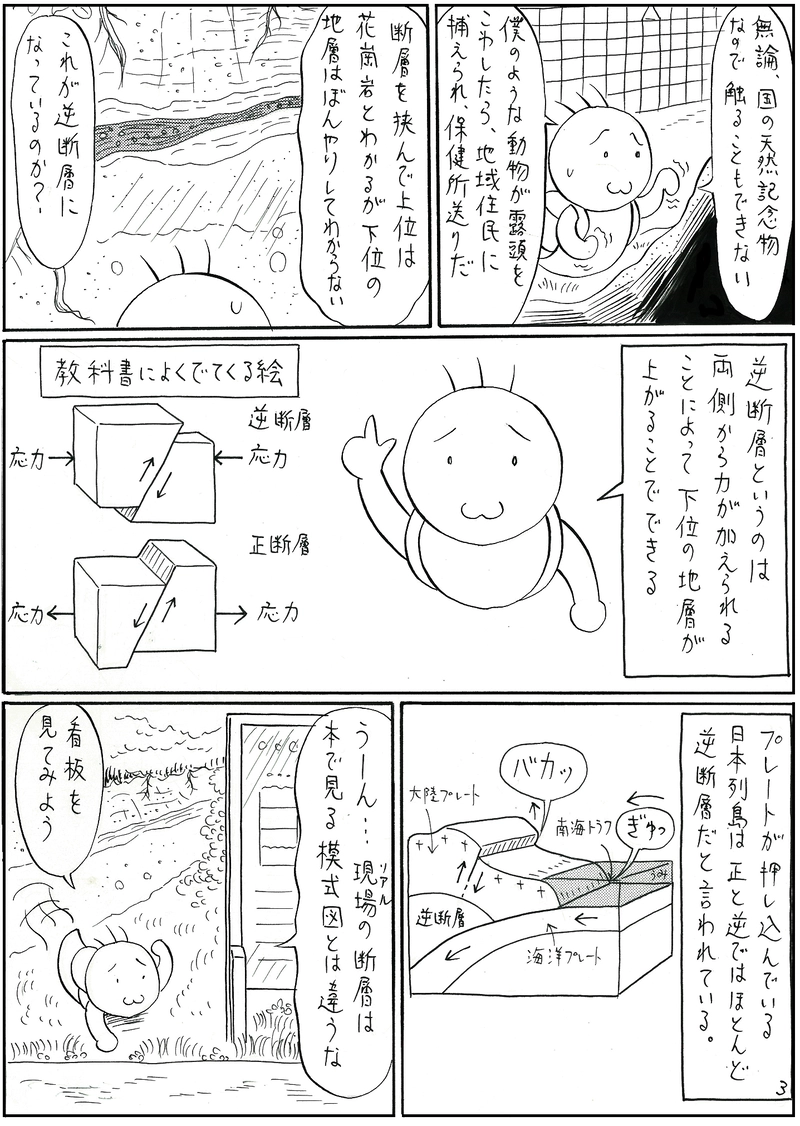 無論、国の天然記念物
なので触ることもできない
僕のような動物が露頭を
こわしたら、地域住民に
捕えられ、保健所送りだ
断層を挟んで上位は
花崗岩とわかるが下位の
地層はぼんやりしてわからない
これが逆断層に
なっているのか?
逆断層というのは
両側から力が加えられる
ことによって下位の地層が
上がることでできる
教科書によくでてくる絵
逆断層
応力
応力
正断層
応力
応力
プレートが押し込んでいる
日本列島は正と逆ではほとんど
逆断層だと言われている。
バカッ
ぎゅっ
大陸プレート
南海トラフ
うみ
逆断層
海洋プレート
3
うーん…現場の断層は
リアル
本で見る模式図とは違うな
看板を
見てみよう